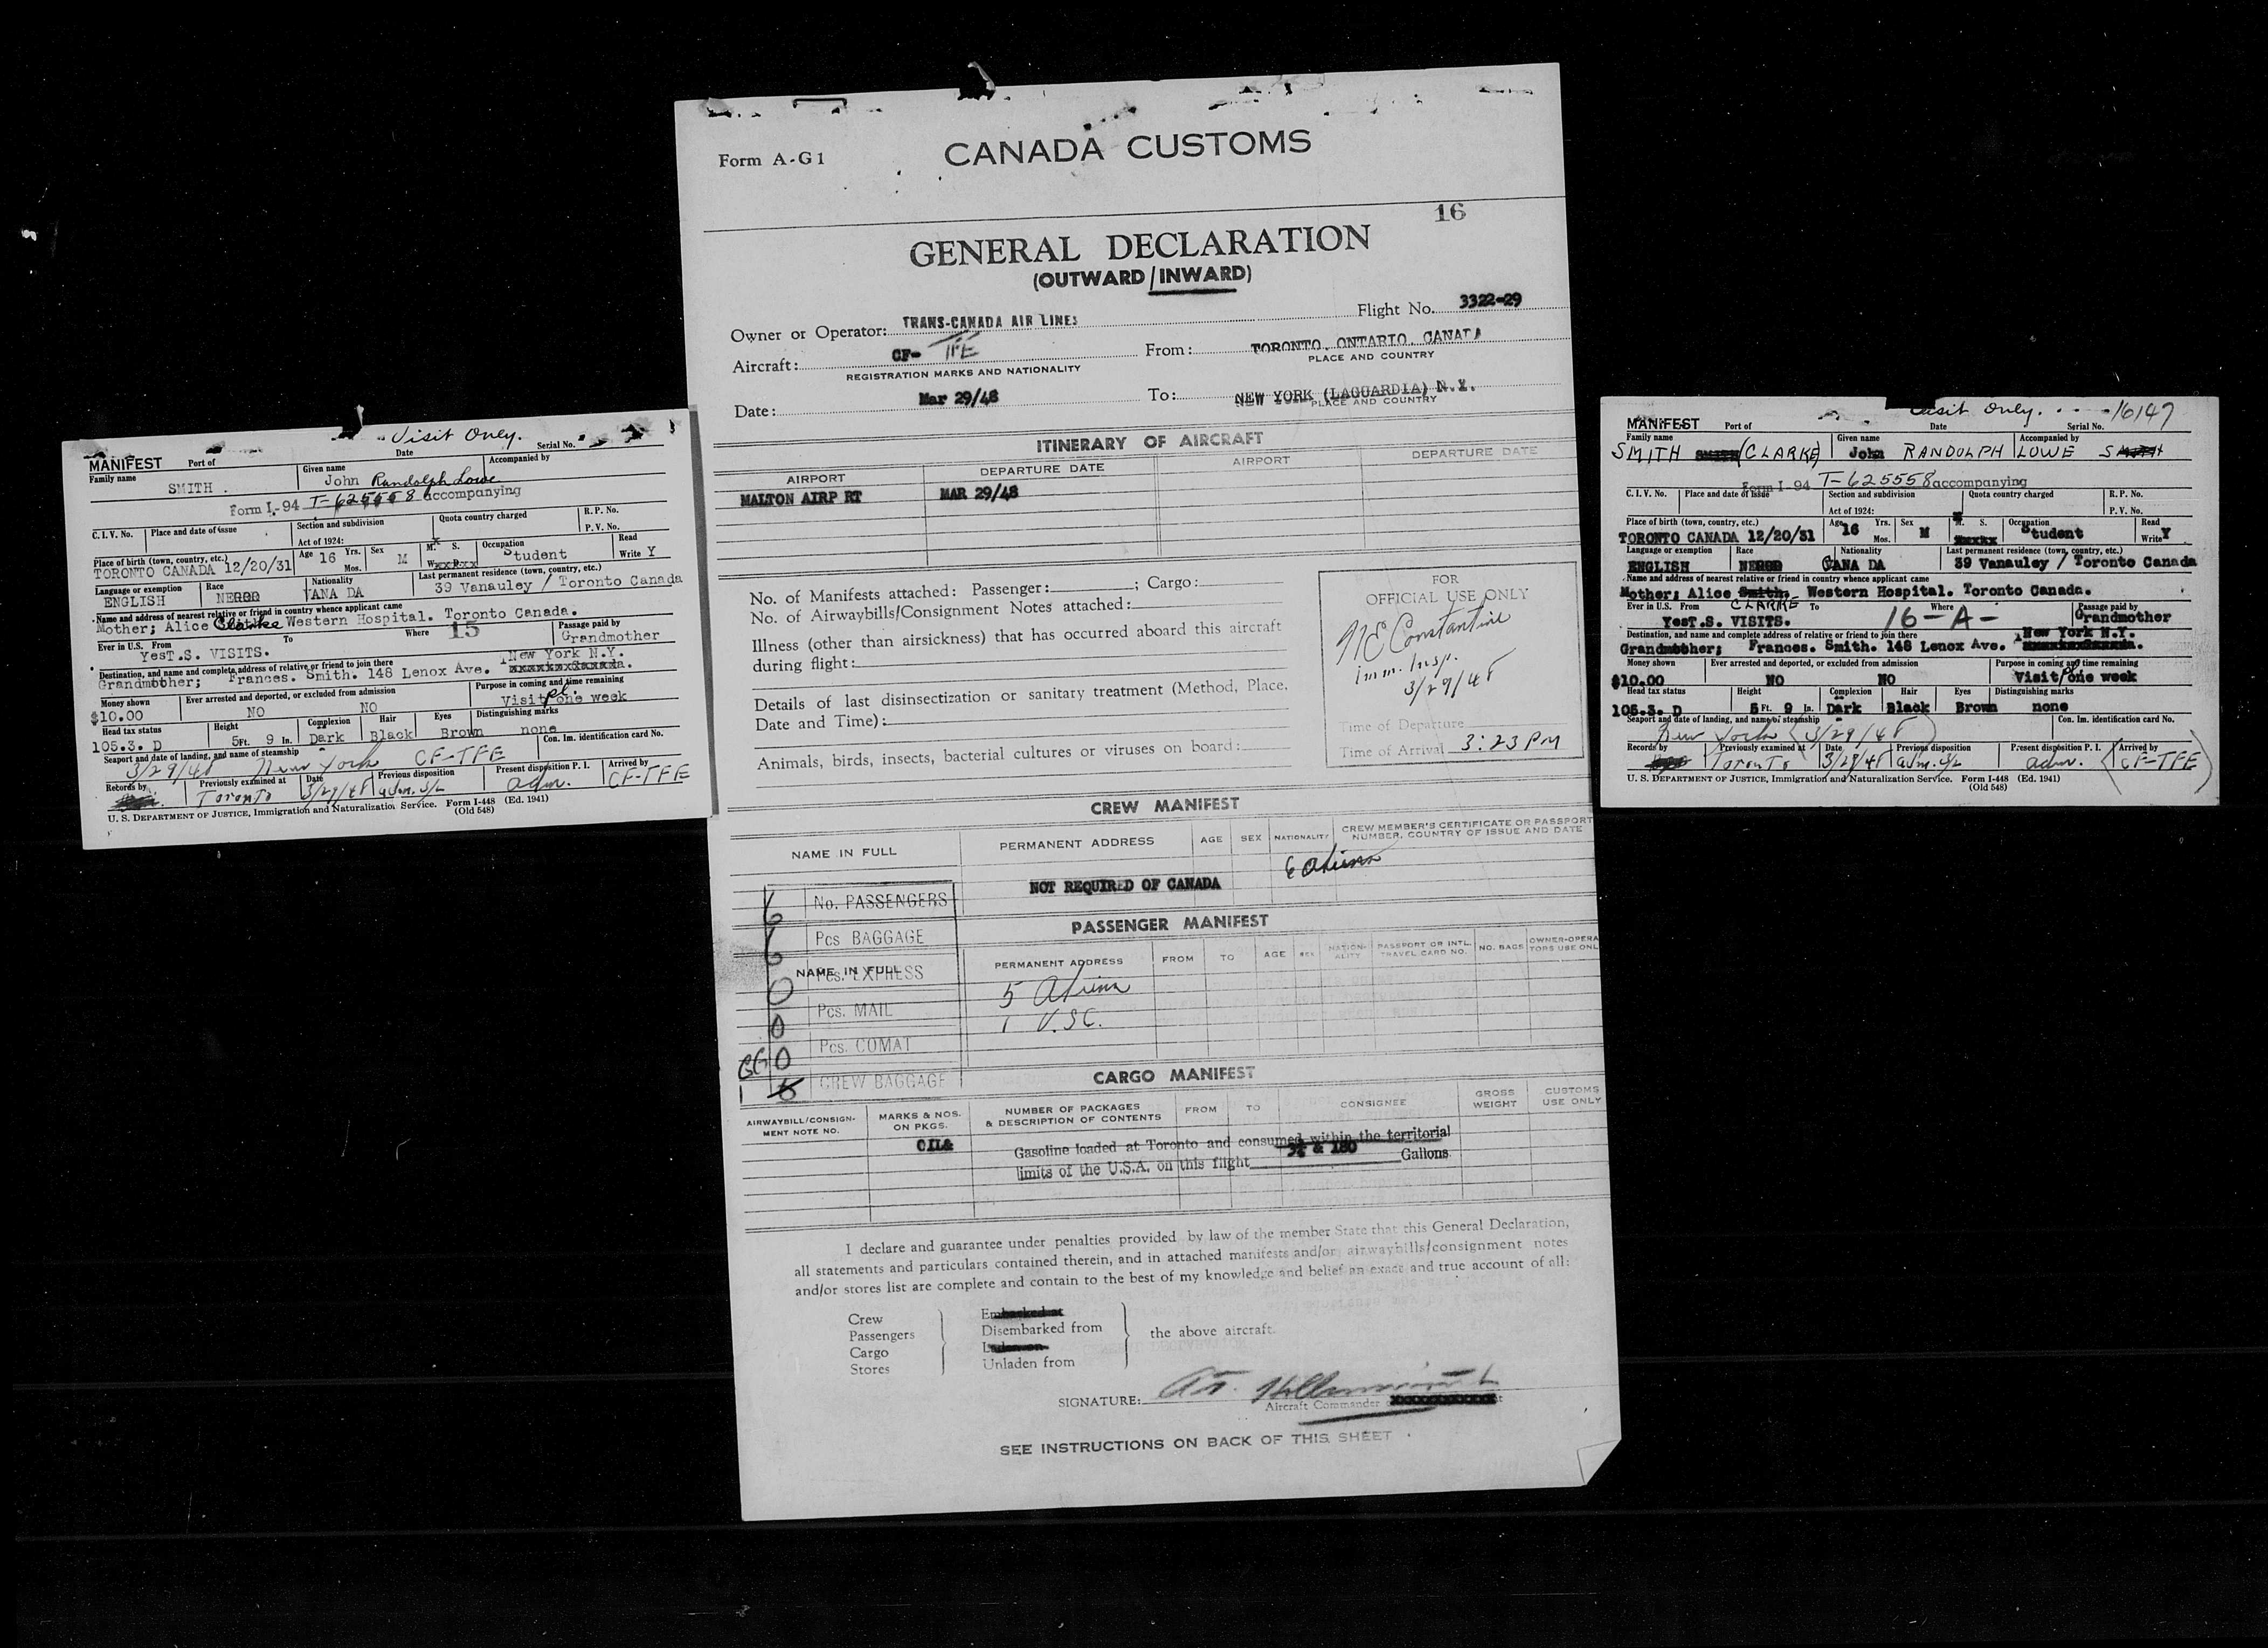 Visit Only.
MANIFEST Port of Date Serial No.
Family name Given name Accompanied by
SMITH . John Randolph Lowe
Form I-94 T-625558 accompanying
C. I. V. No. Place and date of issue Section and subdivision Quota country charged R. P. No.
Act of 1924: P. V. No.
Place of birth (town, country, etc.) Age 16 Yrs. Sex M. S. Occupation Read
TORONTO CANADA 12/20/31 Mos. M Student Write Y
Language or exemption Race Nationality Last permanent residence (town, country, etc.)
ENGLISH NEGRO CANA DA 39 Vanauley / Toronto Canada
Name and address of nearest relative or friend in country whence applicant came
Mother; Alice Clarke Western Hospital. Toronto Canada.
Ever in U.S. From To Where 15 Passage paid by
YesT.S. VISITS. Grandmother
Destination, and name and complete address of relative or friend to join there New York N.Y.
Grandmother; Frances. Smith. 148 Lenox Ave.
Money shown Ever arrested and deported, or excluded from admission Purpose in coming and time remaining
$10.00 NO NO Visit pl. one week
Head tax status Height Complexion Hair Eyes Distinguishing marks
105.3. D 5 Ft. 9 In. Dark Black Brown none
Seaport and date of landing, and name of steamship Con. Im. identification card No.
3/29/48 New York CF-TFE
Records by Previously examined at Date Previous disposition Present disposition P. I. Arrived by
Toronto 3/29/48 adm. adm. CF-TFE
U. S. DEPARTMENT OF JUSTICE, Immigration and Naturalization Service. Form I-448 (Ed. 1941)
(Old 548)
Form A-G1 CANADA CUSTOMS
16
GENERAL DECLARATION
(OUTWARD/INWARD)
Owner or Operator: TRANS-CANADA AIR LINES Flight No. 3322-29
Aircraft: CF- TFE From: TORONTO, ONTARIO, CANADA
REGISTRATION MARKS AND NATIONALITY PLACE AND COUNTRY
Date: Mar 29/48 To: NEW YORK (LAGUARDIA) N.Y.
PLACE AND COUNTRY
ITINERARY OF AIRCRAFT
AIRPORT DEPARTURE DATE AIRPORT DEPARTURE DATE
MALTON AIRP RT MAR 29/48
No. of Manifests attached: Passenger: ; Cargo:
No. of Airwaybills/Consignment Notes attached:
Illness (other than airsickness) that has occurred aboard this aircraft
during flight:
Details of last disinsectization or sanitary treatment (Method, Place,
Date and Time):
Animals, birds, insects, bacterial cultures or viruses on board:
FOR
OFFICIAL USE ONLY
NE Constantine
Imm. Insp.
3/29/48
Time of Departure
Time of Arrival 3:23 PM
CREW MANIFEST
NAME IN FULL PERMANENT ADDRESS AGE SEX NATIONALITY CREW MEMBER'S CERTIFICATE OR PASSPORT
NUMBER, COUNTRY OF ISSUE AND DATE
6 aliens
NOT REQUIRED OF CANADA
6 No. PASSENGERS
PASSENGER MANIFEST
6 Pcs BAGGAGE
NAME IN FULL PERMANENT ADDRESS FROM TO AGE SEX NATION-ALITY PASSPORT OR INTL. TRAVEL CARD NO. NO. BAGS OWNER-OPERA TORS USE ONL
0 Pcs. EXPRESS
5 Aliens
0 Pcs. MAIL
1 U.S.C.
0 Pcs. COMAT
CREW BAGGAGE
CARGO MANIFEST
AIRWAYBILL/CONSIGN-MENT NOTE NO. MARKS & NOS. ON PKGS. NUMBER OF PACKAGES & DESCRIPTION OF CONTENTS FROM TO CONSIGNEE GROSS WEIGHT CUSTOMS USE ONLY
OIL& Gasoline loaded at Toronto and consumed within the territorial
limits of the U.S.A. on this flight & 180 Gallons
I declare and guarantee under penalties provided by law of the member State that this General Declaration,
all statements and particulars contained therein, and in attached manifests and/or airwaybills/consignment notes
and/or stores list are complete and contain to the best of my knowledge and belief an exact and true account of all:
Crew Embarked at
Passengers Disembarked from the above aircraft.
Cargo Laden on
Stores Unladen from
SIGNATURE:
Aircraft Commander
SEE INSTRUCTIONS ON BACK OF THIS SHEET
Visit Only. 16147
MANIFEST Port of Date Serial No.
Family name Given name Accompanied by
SMITH (CLARKE) John RANDOLPH LOWE SMITH
Form I-94 T-625558 accompanying
C. I. V. No. Place and date of issue Section and subdivision Quota country charged R. P. No.
Act of 1924: P. V. No.
Place of birth (town, country, etc.) Age 16 Yrs. Sex M. S. Occupation Read
TORONTO CANADA 12/20/31 Mos. M Student Write Y
Language or exemption Race Nationality Last permanent residence (town, country, etc.)
ENGLISH NEGRO CANA DA 39 Vanauley / Toronto Canada
Name and address of nearest relative or friend in country whence applicant came
Mother; Alice Smith. Western Hospital. Toronto Canada.
Ever in U.S. From CLARKE To Where Passage paid by
YesT.S. VISITS. 16-A- Grandmother
Destination, and name and complete address of relative or friend to join there New York N.Y.
Grandmother; Frances. Smith. 148 Lenox Ave.
Money shown Ever arrested and deported, or excluded from admission Purpose in coming and time remaining
$10.00 NO NO Visit pl. one week
Head tax status Height Complexion Hair Eyes Distinguishing marks
105.3. D 5 Ft. 9 In. Dark Black Brown none
Seaport and date of landing, and name of steamship Con. Im. identification card No.
New York (3/29/48)
Records by Previously examined at Date Previous disposition Present disposition P. I. Arrived by
Toronto 3/29/48 adm. adm. (CF-TFE)
U. S. DEPARTMENT OF JUSTICE, Immigration and Naturalization Service. Form I-448 (Ed. 1941)
(Old 548)